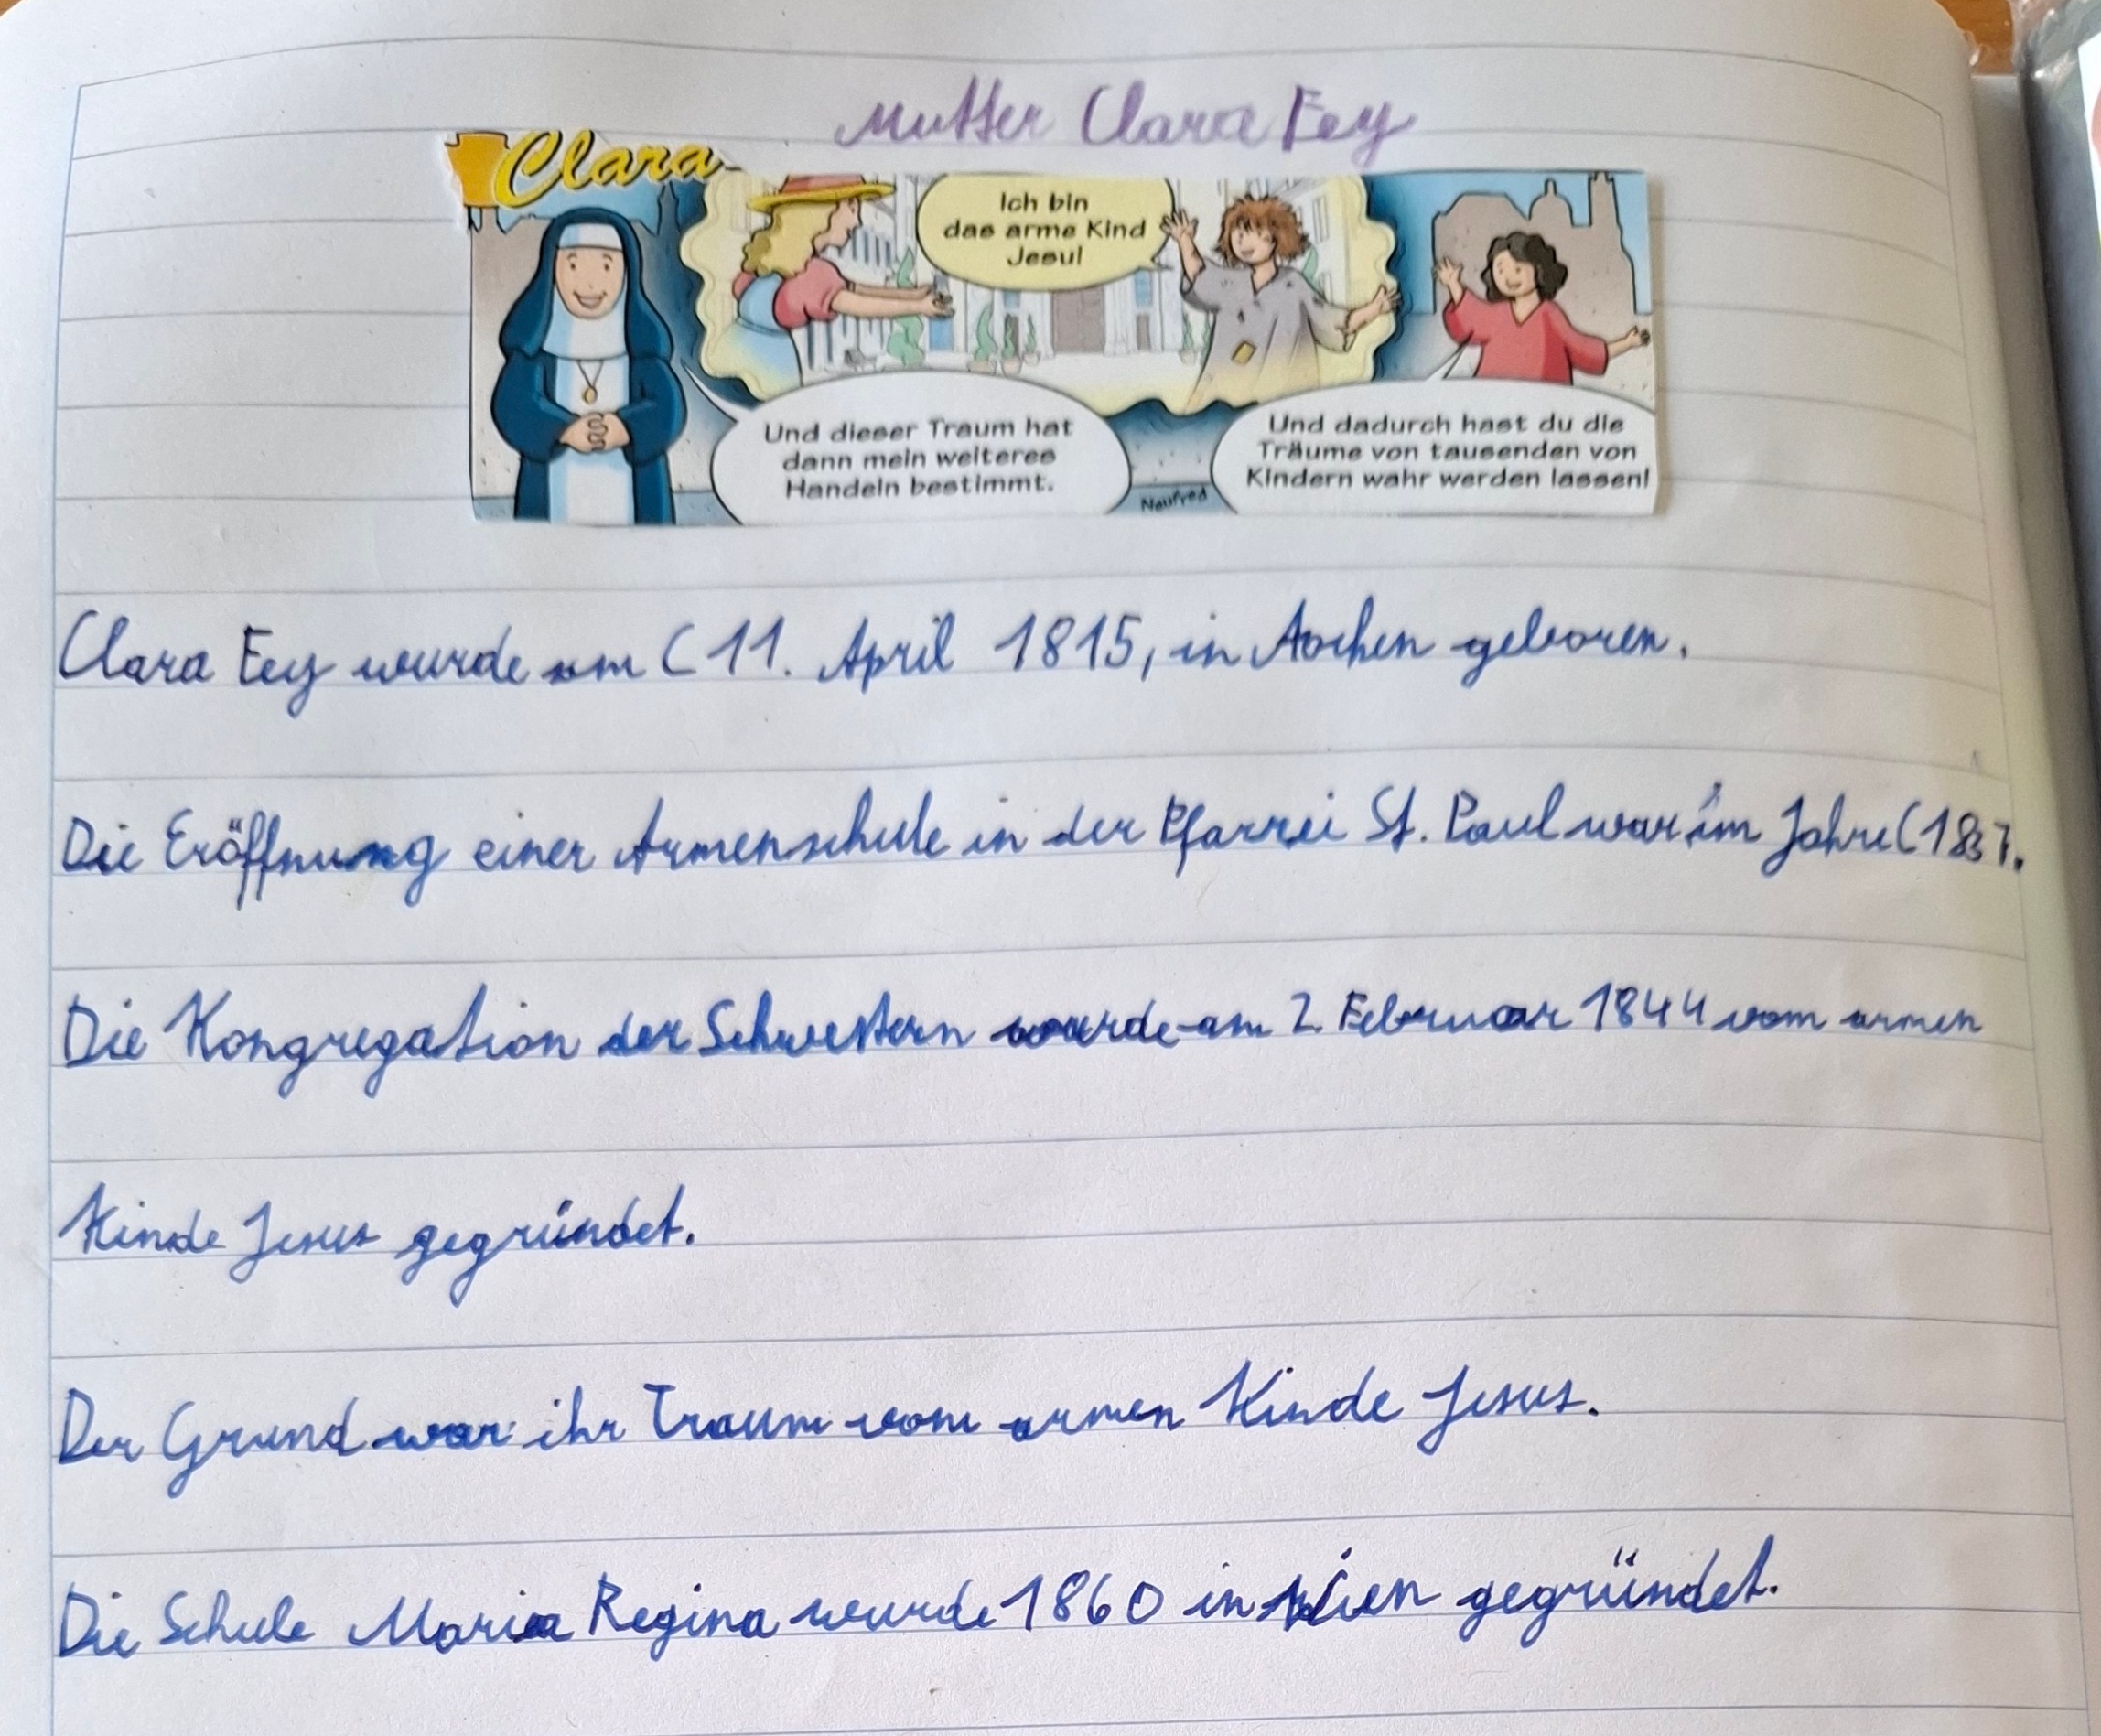 Mutter Clara Fey
Clara
Ich bin
das arme Kind
Jesu!
Und dieser Traum hat
dann mein weiteres
Handeln bestimmt.
Und dadurch hast du die
Träume von tausenden von
Kindern wahr werden lassen!
Neufred
Clara Fey wurde am (11. April 1815, in Aachen geboren.
Die Eröffnung einer Armenschule in der Pfarrei St. Paul war im Jahre (1837.
Die Kongregation der Schwestern wurde am 2. Februar 1844 vom armen
Kinde Jesus gegründet.
Der Grund war ihr Traum vom armen Kinde Jesus.
Die Schule Maria Regina wurde 1860 in Wien gegründet.